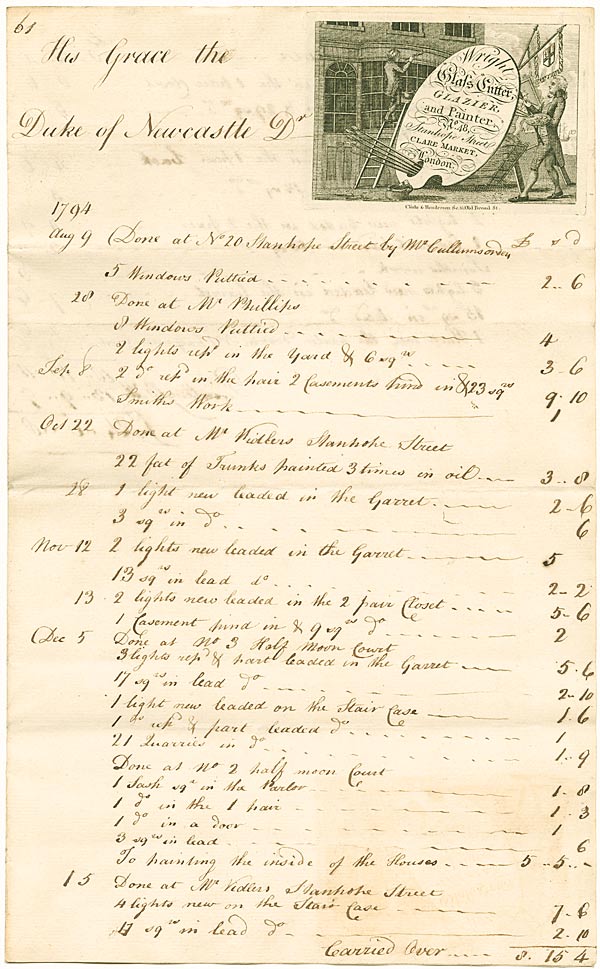 61
His Grace the
Duke of Newcastle Dr
Wright
Glass Cutter,
GLAZIER,
and Painter,
No. 48,
Stanhope Street
CLARE MARKET,
London.
1794
Aug 9 Done at No 20 Stanhope Street by Mr Cullums order £ s d
5 Windows Puttied 2 - 6
28 Done at Mr Phillips
8 Windows Puttied 4
2 lights repd in the Yard & 6 sqrs 3 - 6
Sep 8 2 do repd in the pair 2 Casements pind in & 23 sqrs 9 - 10
Smiths Work 1
Oct 22 Done at Mr Vidlers Stanhope Street
22 fat of Trunks painted 3 times in oil 3 - 8
28 1 light new leaded in the Garret 2 - 6
3 sqrs in do 6
Nov 12 2 lights new leaded in the Garret 5
13 sqrs in lead do 2 - 2
13 2 lights new leaded in the 2 pair Closet 5 - 6
1 Casement pind in & 9 sqrs do 2
Dec 5 Done at No 3 Half Moon Court
3 lights repd & part leaded in the Garret 5 - 6
17 sqrs in lead do 2 - 10
1 light new leaded on the Stair Case 1 - 6
1 do repd & part leaded do 1
21 Quarries in do 1 - 9
Done at No 2 half moon Court
1 Sash sqr in the Parlor 1 - 8
1 do in the 1 pair 1 - 3
1 do in a door 1
3 sqrs in lead 6
To painting the inside of the Houses 5 - 5 -
15 Done at Mr Vidlers Stanhope Street
4 lights new on the Stair Case 7 - 6
17 sqrs in lead do 2 - 10
Carried Over 8 - 15 4